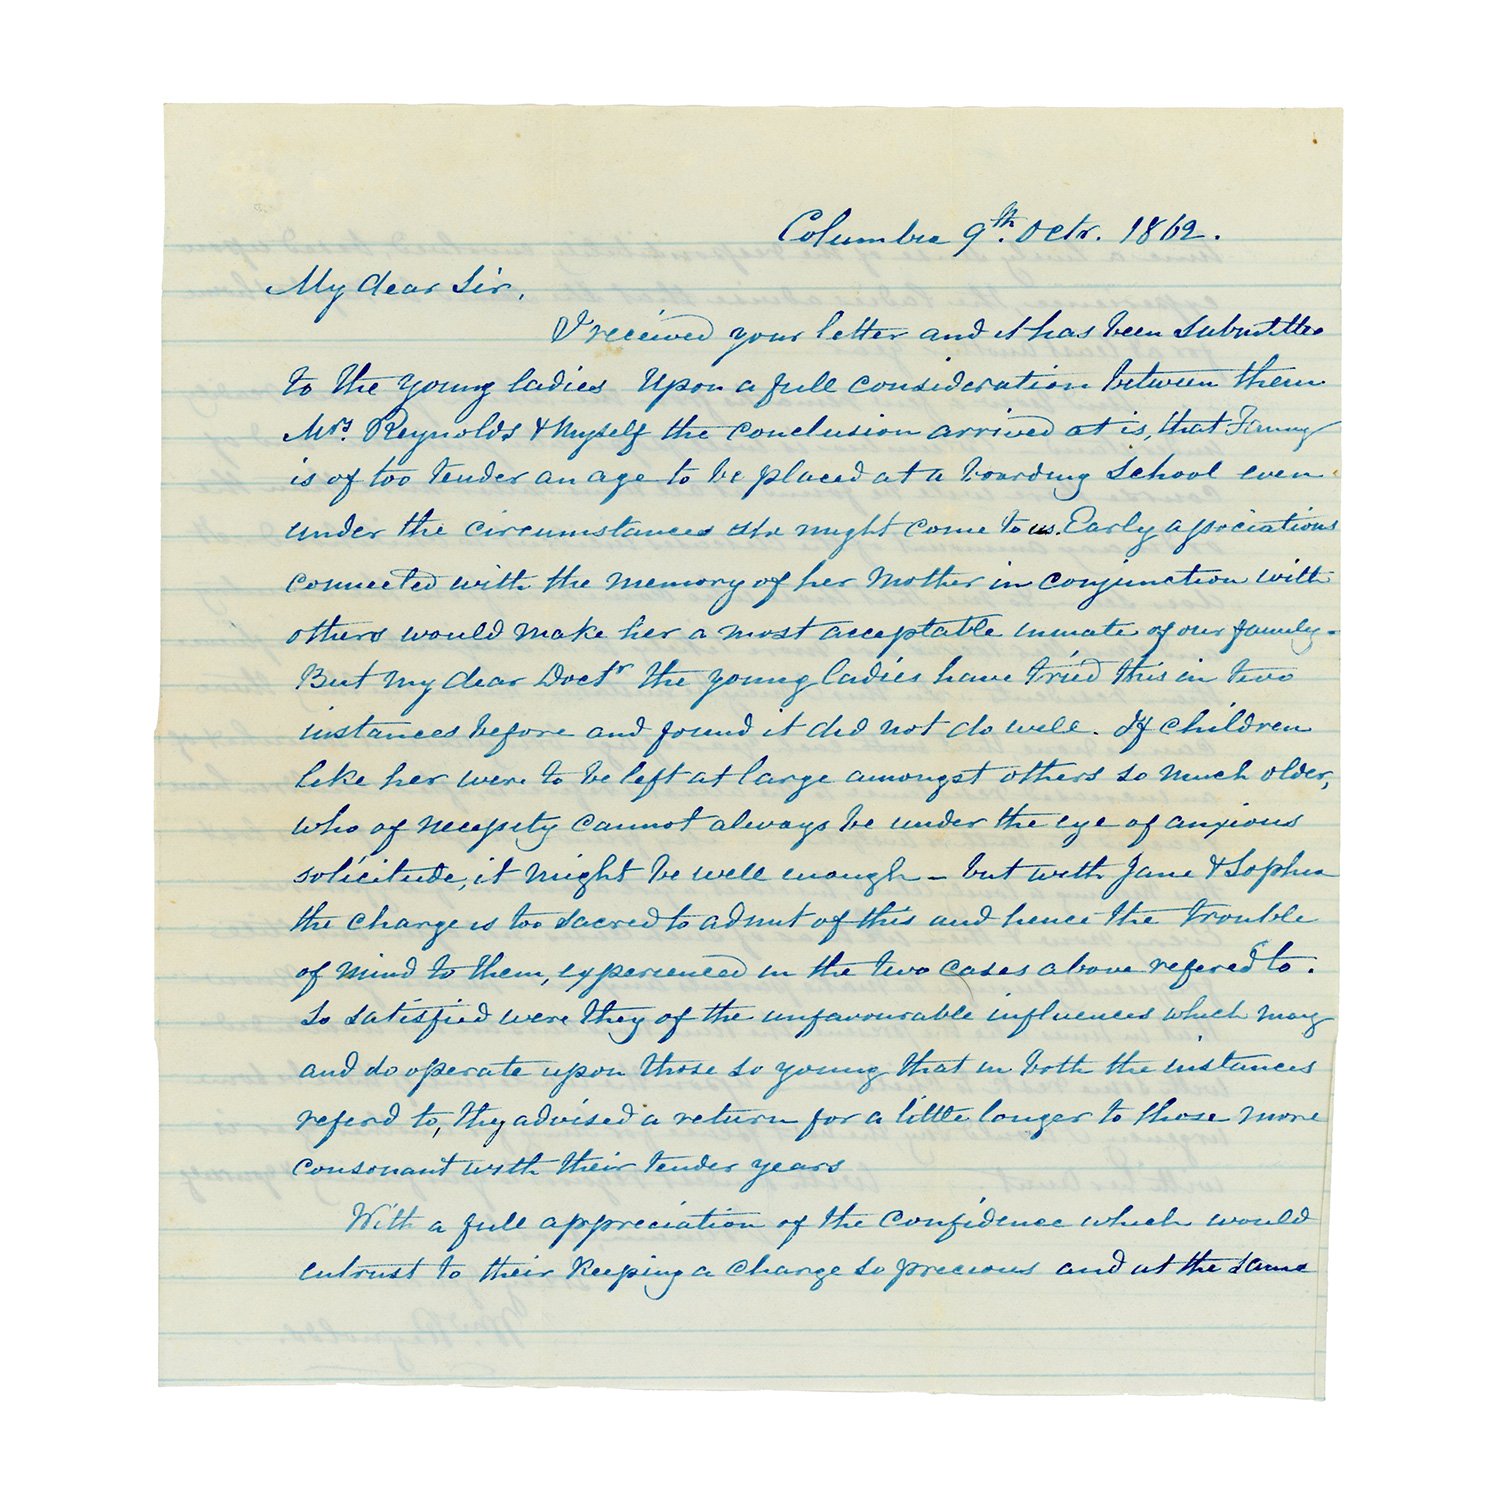 Columbia 9th. Octr. 1862.
My dear Sir,
I received your letter and it has been submitted
to the young ladies Upon a full consideration between them
Mrs. Reynolds & myself the conclusion arrived at is, that Fanny
is of too tender an age to be placed at a boarding school even
under the circumstances she might come to us. Early associations
connected with the memory of her Mother in conjunction with
others would make her a most acceptable inmate of our family.
But my dear Doctr the young ladies have tried this in two
instances before and found it did not do well. If children
like her were to be left at large amongst others so much older,
who of necessity cannot always be under the eye of anxious
solicitude, it might be well enough – but with Jane & Sophia
the charge is too sacred to admit of this and hence the trouble
of mind to them, experienced in the two cases above refered to.
So satisfied were they of the unfavourable influences which may
and do operate upon those so young that in both the instances
referd to, they advised a return for a little longer to those more
consonant with their tender years
With a full appreciation of the confidence which would
entrust to their keeping a charge so precious and at the same